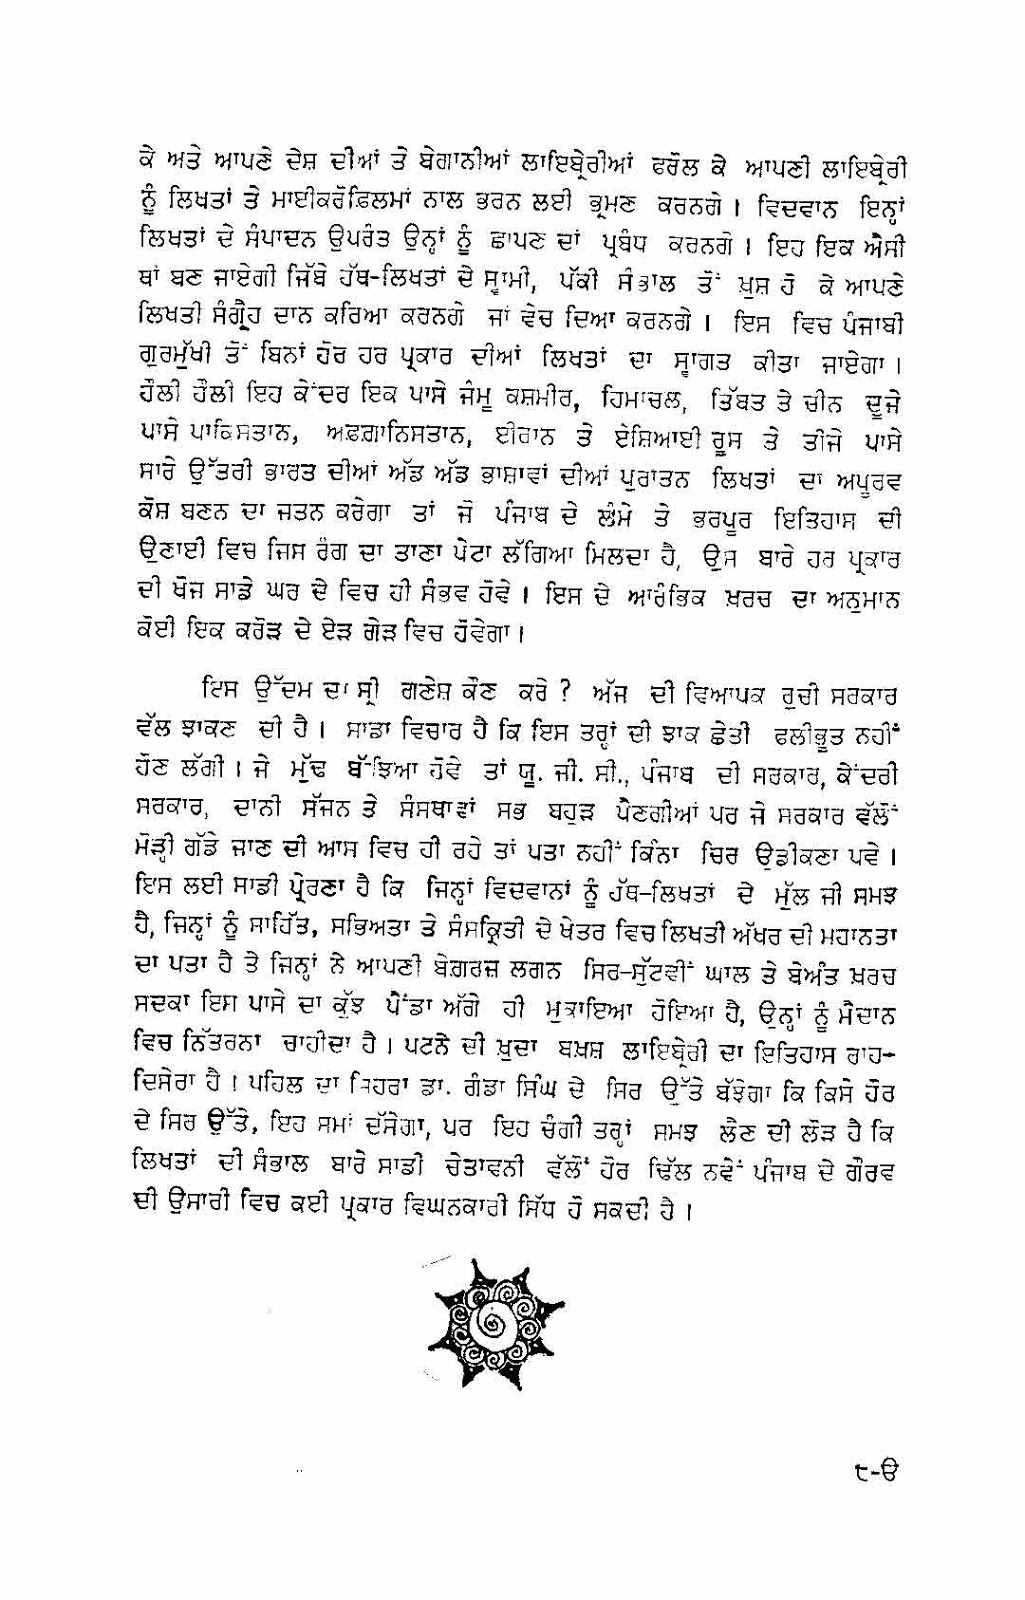 ਕੇ ਅਤੇ ਆਪਣੇ ਦੇਸ਼ ਦੀਆਂ ਤੇ ਬੇਗਾਨੀਆਂ ਲਾਇਬ੍ਰੇਰੀਆਂ ਫਰੋਲ ਕੇ ਆਪਣੀ ਲਾਇਬ੍ਰੇਰੀ
ਨੂੰ ਲਿਖਤਾਂ ਤੇ ਮਾਈਕਰੋਫ਼ਿਲਮਾਂ ਨਾਲ ਭਰਨ ਲਈ ਭ੍ਰਮਣ ਕਰਨਗੇ । ਵਿਦਵਾਨ ਇਨ੍ਹਾਂ
ਲਿਖਤਾਂ ਦੇ ਸੰਪਾਦਨ ਉਪਰੰਤ ਉਨ੍ਹਾਂ ਨੂੰ ਛਾਪਣ ਦਾਂ ਪ੍ਰਬੰਧ ਕਰਨਗੇ । ਇਹ ਇਕ ਐਸੀ
ਥਾਂ ਬਣ ਜਾਏਗੀ ਜਿੱਥੇ ਹੱਥ-ਲਿਖਤਾਂ ਦੇ ਸ੍ਵਾਮੀ, ਪੱਕੀ ਸੰਭਾਲ ਤੋਂ ਖੁਸ਼ ਹੋ ਕੇ ਆਪਣੇ
ਲਿਖਤੀ ਸੰਗ੍ਰੈਹ ਦਾਨ ਕਰਿਆ ਕਰਨਗੇ ਜਾਂ ਵੇਚ ਦਿਆ ਕਰਨਗੇ । ਇਸ ਵਿਚ ਪੰਜਾਬੀ
ਗੁਰਮੁੱਖੀ ਤੋਂ ਬਿਨਾਂ ਹੋਰ ਹਰ ਪ੍ਰਕਾਰ ਦੀਆਂ ਲਿਖਤਾਂ ਦਾ ਸ੍ਵਾਗਤ ਕੀਤਾ ਜਾਏਗਾ ।
ਹੌਲੀ ਹੌਲੀ ਇਹ ਕੇਂਦਰ ਇਕ ਪਾਸੇ ਜੰਮੂ ਕਸ਼ਮੀਰ, ਹਿਮਾਚਲ, ਤਿੱਬਤ ਤੇ ਚੀਨ ਦੂਜੇ
ਪਾਸੇ ਪਾਕਿਸਤਾਨ, ਅਫ਼ਗ਼ਾਨਿਸਤਾਨ, ਈਰਾਨ ਤੇ ਏਸ਼ਿਆਈ ਰੂਸ ਤੇ ਤੀਜੇ ਪਾਸੇ
ਸਾਰੇ ਉੱਤਰੀ ਭਾਰਤ ਦੀਆਂ ਅੱਡ ਅੱਡ ਭਾਸ਼ਾਵਾਂ ਦੀਆਂ ਪੁਰਾਤਨ ਲਿਖਤਾਂ ਦਾ ਅਪੂਰਵ
ਕੋਸ਼ ਬਣਨ ਦਾ ਜਤਨ ਕਰੇਗਾ ਤਾਂ ਜੋ ਪੰਜਾਬ ਦੇ ਲੰਮੇ ਤੇ ਭਰਪੂਰ ਇਤਿਹਾਸ ਦੀ
ਉਣਾਈ ਵਿਚ ਜਿਸ ਰੰਗ ਦਾ ਤਾਣਾ ਪੇਟਾ ਲੱਗਿਆ ਮਿਲਦਾ ਹੈ, ਉਸ ਬਾਰੇ ਹਰ ਪ੍ਰਕਾਰ
ਦੀ ਖੋਜ ਸਾਡੇ ਘਰ ਦੇ ਵਿਚ ਹੀ ਸੰਭਵ ਹੋਵੇ । ਇਸ ਦੇ ਆਰੰਭਿਕ ਖ਼ਰਚ ਦਾ ਅਨੁਮਾਨ
ਕੋਈ ਇਕ ਕਰੋੜ ਦੇ ਏੜ ਗੇੜ ਵਿਚ ਹੋਵੇਗਾ ।
ਇਸ ਉੱਦਮ ਦਾ ਸ੍ਰੀ ਗਣੇਸ਼ ਕੌਣ ਕਰੇ ? ਅੱਜ ਦੀ ਵਿਆਪਕ ਰੁਚੀ ਸਰਕਾਰ
ਵੱਲ ਝਾਕਣ ਦੀ ਹੈ । ਸਾਡਾ ਵਿਚਾਰ ਹੈ ਕਿ ਇਸ ਤਰ੍ਹਾਂ ਦੀ ਝਾਕ ਛੇਤੀ ਫਲੀਭੂਤ ਨਹੀਂ
ਹੋਣ ਲੱਗੀ । ਜੇ ਮੁੱਢ ਬੱਝਿਆ ਹੋਵੇ ਤਾਂ ਯੂ. ਜੀ. ਸੀ., ਪੰਜਾਬ ਦੀ ਸਰਕਾਰ, ਕੇਂਦਰੀ
ਸਰਕਾਰ, ਦਾਨੀ ਸੱਜਨ ਤੇ ਸੰਸਥਾਵਾਂ ਸਭ ਬਹੁੜ ਪੈਣਗੀਆਂ ਪਰ ਜੇ ਸਰਕਾਰ ਵੱਲੋਂ
ਮੋੜ੍ਹੀ ਗੱਡੇ ਜਾਣ ਦੀ ਆਸ ਵਿਚ ਹੀ ਰਹੇ ਤਾਂ ਪਤਾ ਨਹੀਂ ਕਿੰਨਾ ਚਿਰ ਉਡੀਕਣਾ ਪਵੇ ।
ਇਸ ਲਈ ਸਾਡੀ ਪ੍ਰੇਰਣਾ ਹੈ ਕਿ ਜਿਨ੍ਹਾਂ ਵਿਦਵਾਨਾਂ ਨੂੰ ਹੱਥ-ਲਿਖਤਾਂ ਦੇ ਮੁੱਲ ਜੀ ਸਮਝ
ਹੈ, ਜਿਨ੍ਹਾਂ ਨੂੰ ਸਾਹਿੱਤ, ਸਭਿਅਤਾ ਤੇ ਸੰਸਕ੍ਰਿਤੀ ਦੇ ਖੇਤਰ ਵਿਚ ਲਿਖਤੀ ਅੱਖਰ ਦੀ ਮਹਾਨਤਾ
ਦਾ ਪਤਾ ਹੈ ਤੇ ਜਿਨ੍ਹਾਂ ਨੇ ਆਪਣੀ ਬੇਗ਼ਰਜ਼ ਲਗਨ ਸਿਰ-ਸੁੱਟਵੀਂ ਘਾਲ ਤੇ ਬੇਅੰਤ ਖ਼ਰਚ
ਸਦਕਾ ਇਸ ਪਾਸੇ ਦਾ ਕੁੱਝ ਪੈਂਡਾ ਅੱਗੇ ਹੀ ਮੁਕਾਇਆ ਹੋਇਆ ਹੈ, ਉਨ੍ਹਾਂ ਨੂੰ ਮੈਦਾਨ
ਵਿਚ ਨਿੱਤਰਨਾ ਚਾਹੀਦਾ ਹੈ । ਪਟਨੇ ਦੀ ਖ਼ੁਦਾ ਬਖ਼ਸ਼ ਲਾਇਬ੍ਰੇਰੀ ਦਾ ਇਤਿਹਾਸ ਰਾਹ-
ਦਿਸੇਰਾ ਹੈ । ਪਹਿਲ ਦਾ ਸਿਹਰਾ ਡਾ. ਗੰਡਾ ਸਿੰਘ ਦੇ ਸਿਰ ਉੱਤੇ ਬੱਝੇਗਾ ਕਿ ਕਿਸੇ ਹੋਰ
ਦੇ ਸਿਰ ਉੱਤੇ, ਇਹ ਸਮਾਂ ਦੱਸੇਗਾ, ਪਰ ਇਹ ਚੰਗੀ ਤਰ੍ਹਾਂ ਸਮਝ ਲੈਣ ਦੀ ਲੋੜ ਹੈ ਕਿ
ਲਿਖਤਾਂ ਦੀ ਸੰਭਾਲ ਬਾਰੇ ਸਾਡੀ ਚੇਤਾਵਨੀ ਵੱਲੋਂ ਹੋਰ ਢਿੱਲ ਨਵੇਂ ਪੰਜਾਬ ਦੇ ਗੌਰਵ
ਦੀ ਉਸਾਰੀ ਵਿਚ ਕਈ ਪ੍ਰਕਾਰ ਵਿਘਨਕਾਰੀ ਸਿੱਧ ਹੋ ਸਕਦੀ ਹੈ ।
੮-ੳ